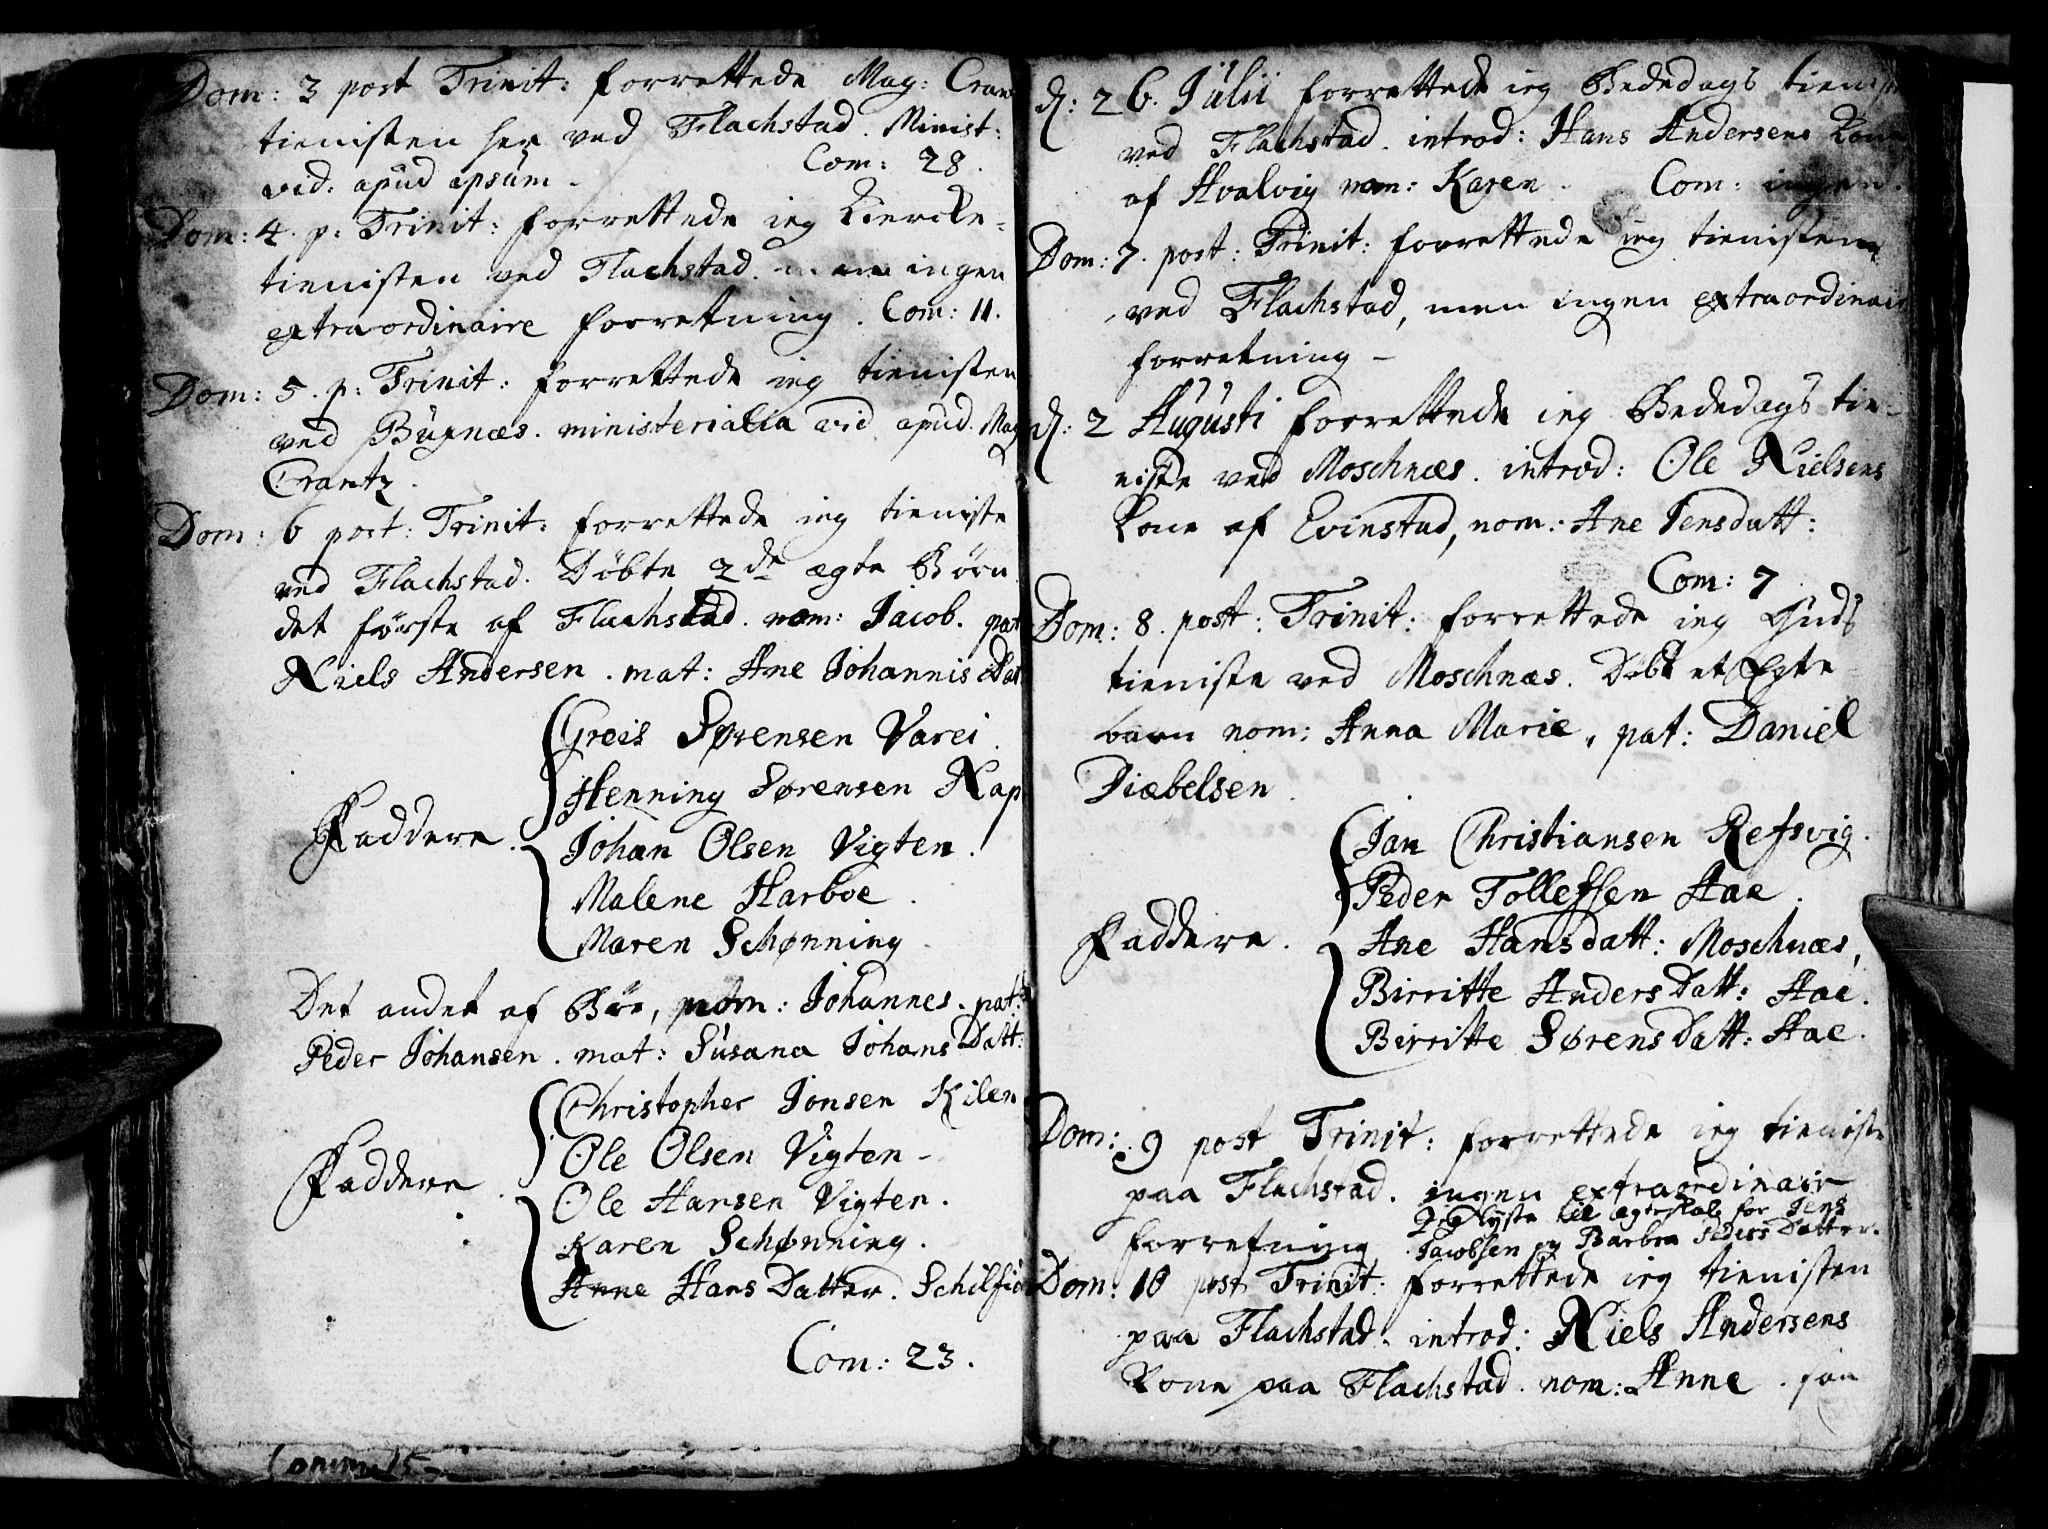 Dom: 3 post Trinit: forrettede Mag: Cran
tienisten her ved Flachstad. Minist:
vid: apud ipsum. Com: 28.
Dom: 4. p: Trinit: forrettede ieg Kiercke-
tienisten ved Flachstad. men ingen
extraordinaire forretning. Com: 11.
Dom: 5. p: Trinit: forrettede ieg tienisten
ved Buxnæs. ministerialia vid apud Mag
Crantz.
Dom: 6 post: Trinit: forrettede ieg tieniste
ved Flachstad. Döbte 2de ægte Börn
det første af Flachstad. nom: Jacob. pat
Niels Andersen. mat: Ane Johannis Dat
Faddere.
Greis Sørensen Varei.
Henning Sørensen Nap
Johan Olsen Vigten.
Malene Harboe.
Maren Schønning.
Det andet af Bøe, nom: Johannes. pat:
Peder Johansen. mat: Susana Johans Datt:
Faddere.
Christopher Jonsen Kilen
Ole Olsen Vigten-
Ole Hansen Vigten.
Karen Schønning.
Anne Hans Datter. Schilfio
Com: 23.
Comm: 15-
d: 26. Julii forrettede ieg Bededags tienist
ved Flachstad. introd: Hans Andersens Kone
af Hvalvig nom: Karen. Com: ingen.
Dom: 7. post: Trinit: forrettede ieg tienisten
ved Flachstad, men ingen extraordinair
forretning-
d: 2 Augusti forrettede ieg Bededags tie-
niste ved Moschnæs. introd: Ole Nielsens
Kone af Evinstad, nom: Ane Jensdatt:
Com: 7
Dom: 8. post: Trinit: forrettede ieg Guds
tieniste ved Moschnæs. Döbt et Egte-
barn nom: Anna Marie, pat: Daniel
Diæbelsen.
Faddere.
Jan Christiansen Refsvig.
Peder Tollefsen Aae.
Ane Hansdatt: Moschnæs,
Birritte Anders Datt: Aae.
Birritte Sørens Datt: Aae.
Dom: 9 post Trinit: forrettede ieg tieniste
paa Flachstad. ingen extraordinair
forretning lyste til ægteskab for Jens
Jacobsen og Barbra Peders Datter.
Dom: 10 post Trinit: forrettede ieg tienisten
paa Flachstad. introd: Niels Andersens
Kone paa Flachstad. nom: Anne. saa